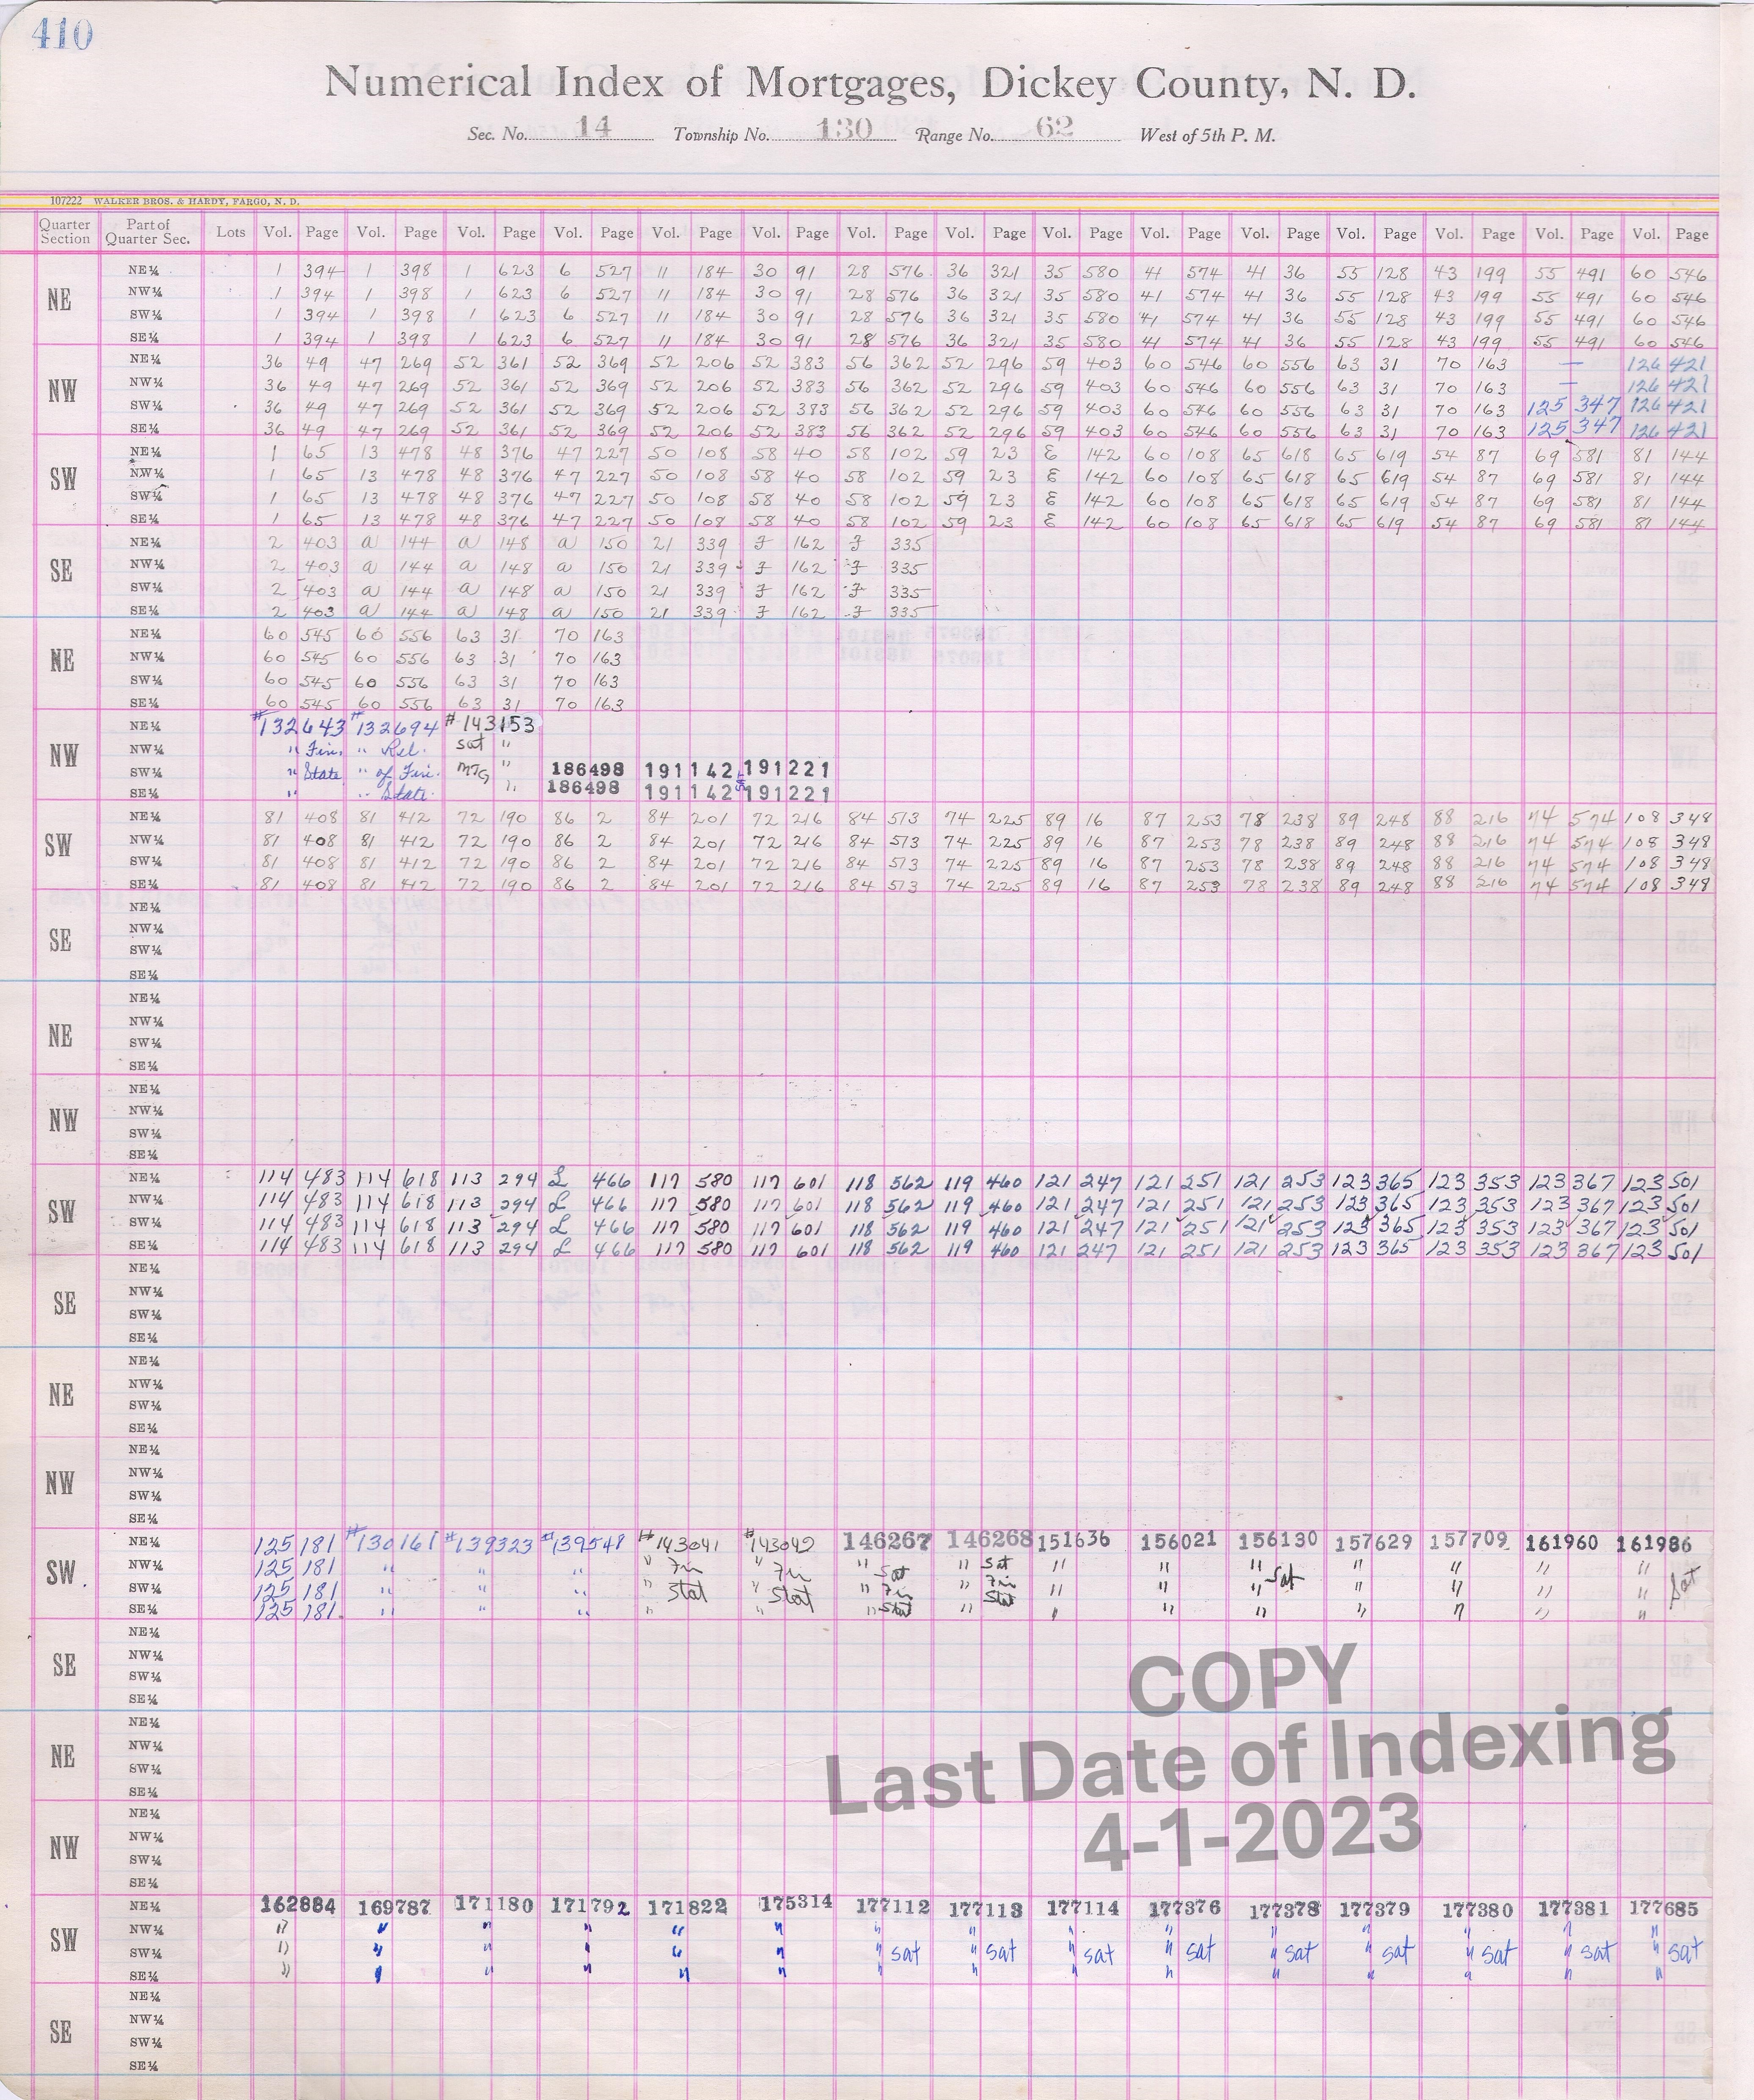 410
Numerical Index of Mortgages, Dickey County, N. D.
Sec. No. 14 Township No. 130 Range No. 62 West of 5th P. M.
107222 WALKER BROS. & HARDY, FARGO, N. D.
Quarter Section Part of Quarter Sec. Lots Vol. Page Vol. Page Vol. Page Vol. Page Vol. Page Vol. Page Vol. Page Vol. Page Vol. Page Vol. Page Vol. Page Vol. Page Vol. Page Vol. Page Vol. Page
NE
NE¼ 1 394 1 398 1 623 6 527 11 184 30 91 28 576 36 321 35 580 41 574 41 36 55 128 43 199 55 491 60 546
NW¼ 1 394 1 398 1 623 6 527 11 184 30 91 28 576 36 321 35 580 41 574 41 36 55 128 43 199 55 491 60 546
SW¼ 1 394 1 398 1 623 6 527 11 184 30 91 28 576 36 321 35 580 41 574 41 36 55 128 43 199 55 491 60 546
SE¼ 1 394 1 398 1 623 6 527 11 184 30 91 28 576 36 321 35 580 41 574 41 36 55 128 43 199 55 491 60 546
NW
NE¼ 36 49 47 269 52 361 52 369 52 206 52 383 56 362 52 296 59 403 60 546 60 556 63 31 70 163 — 126 421
NW¼ 36 49 47 269 52 361 52 369 52 206 52 383 56 362 52 296 59 403 60 546 60 556 63 31 70 163 — 126 421
SW¼ 36 49 47 269 52 361 52 369 52 206 52 383 56 362 52 296 59 403 60 546 60 556 63 31 70 163 125 347 126 421
SE¼ 36 49 47 269 52 361 52 369 52 206 52 383 56 362 52 296 59 403 60 546 60 556 63 31 70 163 125 347 126 421
SW
NE¼ 1 65 13 478 48 376 47 227 50 108 58 40 58 102 59 23 E 142 60 108 65 618 65 619 54 87 69 581 81 144
NW¼ 1 65 13 478 48 376 47 227 50 108 58 40 58 102 59 23 E 142 60 108 65 618 65 619 54 87 69 581 81 144
SW¼ 1 65 13 478 48 376 47 227 50 108 58 40 58 102 59 23 E 142 60 108 65 618 65 619 54 87 69 581 81 144
SE¼ 1 65 13 478 48 376 47 227 50 108 58 40 58 102 59 23 E 142 60 108 65 618 65 619 54 87 69 581 81 144
SE
NE¼ 2 403 a 144 a 148 a 150 21 339 F 162 F 335
NW¼ 2 403 a 144 a 148 a 150 21 339 F 162 F 335
SW¼ 2 403 a 144 a 148 a 150 21 339 F 162 F 335
SE¼ 2 403 a 144 a 148 a 150 21 339 F 162 F 335
NE
NE¼ 60 545 60 556 63 31 70 163
NW¼ 60 545 60 556 63 31 70 163
SW¼ 60 545 60 556 63 31 70 163
SE¼ 60 545 60 556 63 31 70 163
NW
NE¼ #132643 #132694 #143153
NW¼ " Fin. " Rel. Sat "
SW¼ " State " of Fin. MTG " 186498 191142 SAT 191221
SE¼ " " State. " 186498 191142 191221
SW
NE¼ 81 408 81 412 72 190 86 2 84 201 72 216 84 573 74 225 89 16 87 253 78 238 89 248 88 216 74 574 108 348
NW¼ 81 408 81 412 72 190 86 2 84 201 72 216 84 573 74 225 89 16 87 253 78 238 89 248 88 216 74 574 108 348
SW¼ 81 408 81 412 72 190 86 2 84 201 72 216 84 573 74 225 89 16 87 253 78 238 89 248 88 216 74 574 108 348
SE¼ 81 408 81 412 72 190 86 2 84 201 72 216 84 573 74 225 89 16 87 253 78 238 89 248 88 216 74 574 108 348
SE
NE¼
NW¼
SW¼
SE¼
NE
NE¼
NW¼
SW¼
SE¼
NW
NE¼
NW¼
SW¼
SE¼
SW
NE¼ 114 483 114 618 113 294 L 466 117 580 117 601 118 562 119 460 121 247 121 251 121 253 123 365 123 353 123 367 123 501
NW¼ 114 483 114 618 113 294 L 466 117 580 117 601 118 562 119 460 121 247 121 251 121 253 123 365 123 353 123 367 123 501
SW¼ 114 483 114 618 113 294 L 466 117 580 117 601 118 562 119 460 121 247 121 251 121 253 123 365 123 353 123 367 123 501
SE¼ 114 483 114 618 113 294 L 466 117 580 117 601 118 562 119 460 121 247 121 251 121 253 123 365 123 353 123 367 123 501
SE
NE¼
NW¼
SW¼
SE¼
NE
NE¼
NW¼
SW¼
SE¼
NW
NE¼
NW¼
SW¼
SE¼
SW
NE¼ 125 181 #130161 #139323 #139548 #143041 #143042 146267 146268 151636 156021 156130 157629 157709 161960 161986
NW¼ 125 181 " " " " Fin " Fin " Sat " Sat " " " " " " "
SW¼ 125 181 " " " " Stat " Stat " Fin " Fin " " " Sat " " " " Sat
SE¼ 125 181 " " " " " " Stat " Stat " " " " " " "
SE
NE¼
NW¼
SW¼
SE¼
NE
NE¼
NW¼
SW¼
SE¼
NW
NE¼
NW¼
SW¼
SE¼
COPY
Last Date of Indexing
4-1-2023
SW
NE¼ 162884 169787 171180 171792 171822 175314 177112 177113 177114 177376 177378 177379 177380 177381 177685
NW¼ " " " " " " " " " " " " " " "
SW¼ " " " " " " " sat " sat " sat " sat " sat " sat " sat " sat " sat
SE¼ " " " " " " " " " " " " " " "
SE
NE¼
NW¼
SW¼
SE¼